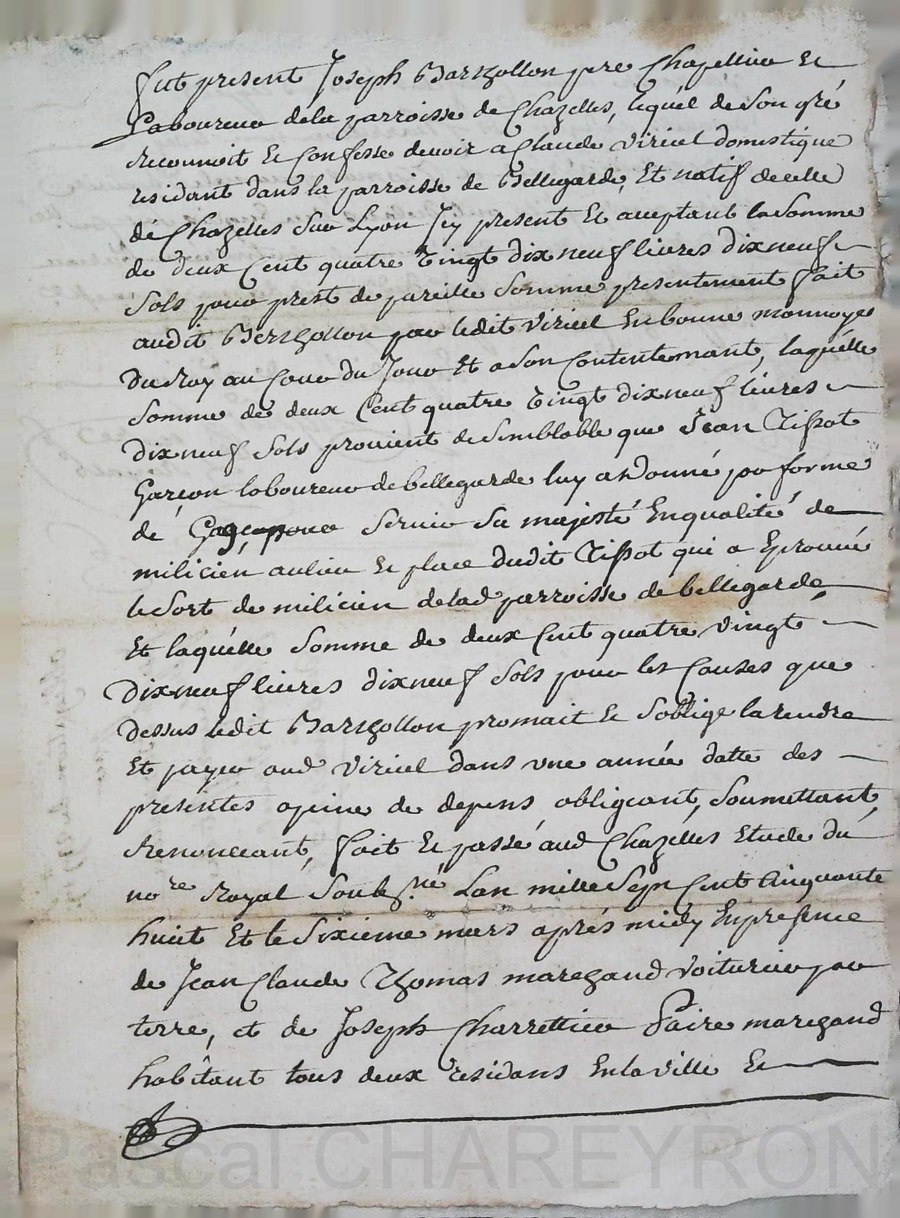 fut present Joseph Barthollon pere Chapellier et
Laboureur dela parroisse de Chazelles, lequel de son gré
reconnoit et Confesse devoir a Claude Viricel domestique
residant dans la parroisse de Bellegarde, Et natif decelle
dé Chazelles sur Lyon Jcy present et aceptant la somme
de deux Cent quatre Vingt dix neuf livres dix neuf
sols pour prest de pareille somme presentement fait
audit Berthollon par ledit Viricel En bonne monnoye
Du Roy au Cour du Jour Et a son Contentemant, laquélle
somme de deux Cent quatre Vingt dix neuf livres
dix neuf sols provient de semblable que Jean Tissot
Garçon laboureur de bellegarde luy a donné par forme
dé Gage pour servir sa majesté En qualité de
milicien aulieu et place dudit Tissot qui a Eprouvé
le sort de milicien delad parroisse de bellegarde
Et laquélle somme de deux Cent quatre vingt
Dix neuf livres dix neuf sols pour les Causes que
dessus ledit Barthollon promait et soblige la rendre
Et payer aud Viricel dans une année datte des
présentes apeine de depens, obligeant, soumettant,
Renonceant, fait et passé aud Chazélles Etude du
nore Royal soubsné Lan mille sept Cent Cinquante
huit Et le sixieme mars aprés midy En presence
de Jean Claude Thomas marchand Voiturier par
terre, et de Joseph Charrettier Faire marchand
habitant tous deux residans En la ville Et
Pascal CHAREYRON